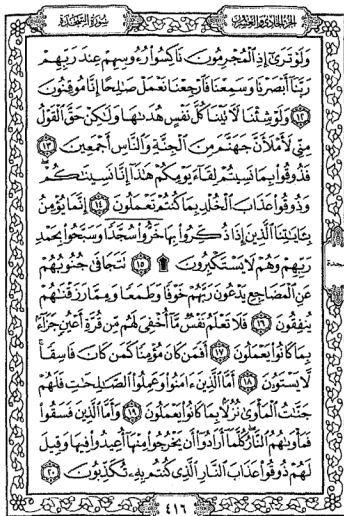 الجزء الحادي والعشرون سورة السجدة
وَلَوْ تَرَىٰ إِذِ الْمُجْرِمُونَ نَاكِسُوا رُءُوسِهِمْ عِندَ رَبِّهِمْ
رَبَّنَا أَبْصَرْنَا وَسَمِعْنَا فَارْجِعْنَا نَعْمَلْ صَالِحًا إِنَّا مُوقِنُونَ
١٢ وَلَوْ شِئْنَا لَآتَيْنَا كُلَّ نَفْسٍ هُدَاهَا وَلَٰكِنْ حَقَّ الْقَوْلُ
مِنِّي لَأَمْلَأَنَّ جَهَنَّمَ مِنَ الْجِنَّةِ وَالنَّاسِ أَجْمَعِينَ ١٣
فَذُوقُوا بِمَا نَسِيتُمْ لِقَاءَ يَوْمِكُمْ هَٰذَا إِنَّا نَسِينَاكُمْ
وَذُوقُوا عَذَابَ الْخُلْدِ بِمَا كُنتُمْ تَعْمَلُونَ ١٤ إِنَّمَا يُؤْمِنُ
بِآيَاتِنَا الَّذِينَ إِذَا ذُكِّرُوا بِهَا خَرُّوا سُجَّدًا وَسَبَّحُوا بِحَمْدِ
رَبِّهِمْ وَهُمْ لَا يَسْتَكْبِرُونَ ۩ ١٥ تَتَجَافَىٰ جُنُوبُهُمْ
عَنِ الْمَضَاجِعِ يَدْعُونَ رَبَّهُمْ خَوْفًا وَطَمَعًا وَمِمَّا رَزَقْنَاهُمْ
يُنفِقُونَ ١٦ فَلَا تَعْلَمُ نَفْسٌ مَّا أُخْفِيَ لَهُم مِّن قُرَّةِ أَعْيُنٍ جَزَاءً
بِمَا كَانُوا يَعْمَلُونَ ١٧ أَفَمَن كَانَ مُؤْمِنًا كَمَن كَانَ فَاسِقًا ۚ
لَّا يَسْتَوُونَ ١٨ أَمَّا الَّذِينَ آمَنُوا وَعَمِلُوا الصَّالِحَاتِ فَلَهُمْ
جَنَّاتُ الْمَأْوَىٰ نُزُلًا بِمَا كَانُوا يَعْمَلُونَ ١٩ وَأَمَّا الَّذِينَ فَسَقُوا
فَمَأْوَاهُمُ النَّارُ كُلَّمَا أَرَادُوا أَن يَخْرُجُوا مِنْهَا أُعِيدُوا فِيهَا وَقِيلَ
لَهُمْ ذُوقُوا عَذَابَ النَّارِ الَّذِي كُنتُم بِهِ تُكَذِّبُونَ ٢٠
سجدة
٤١٦